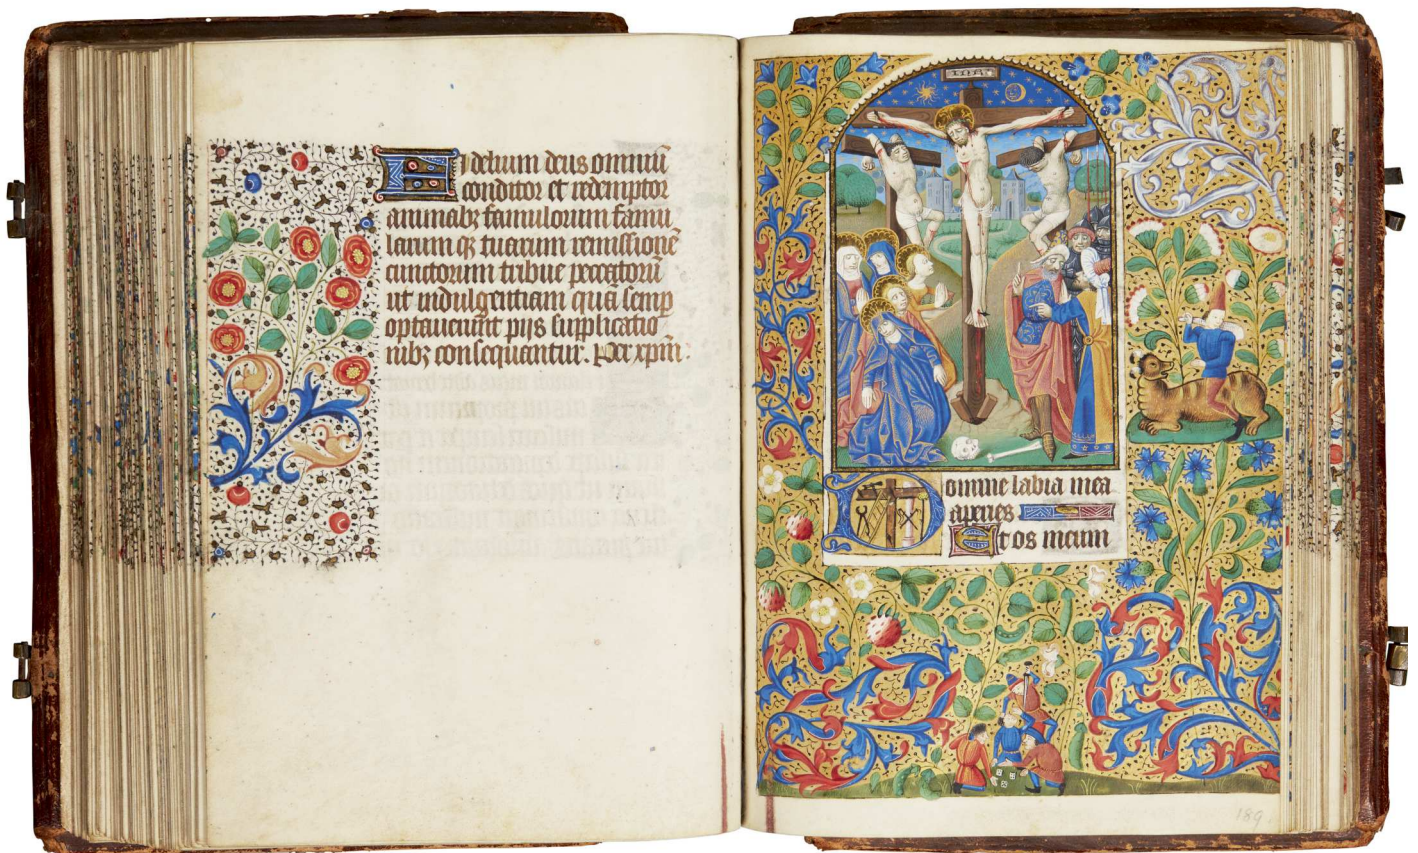 Fidelium deus omniū
conditor et redemptor
animabꝫ famulorum famu
larum qꝫ tuarum remissionē
cunctorum tribue peccatorū
ut indulgentiam quā semp
optauerunt pijs supplicatio
nibꝫ consequantur. Per xpm̄.
Domine labia mea
aperies
Et os meum
189